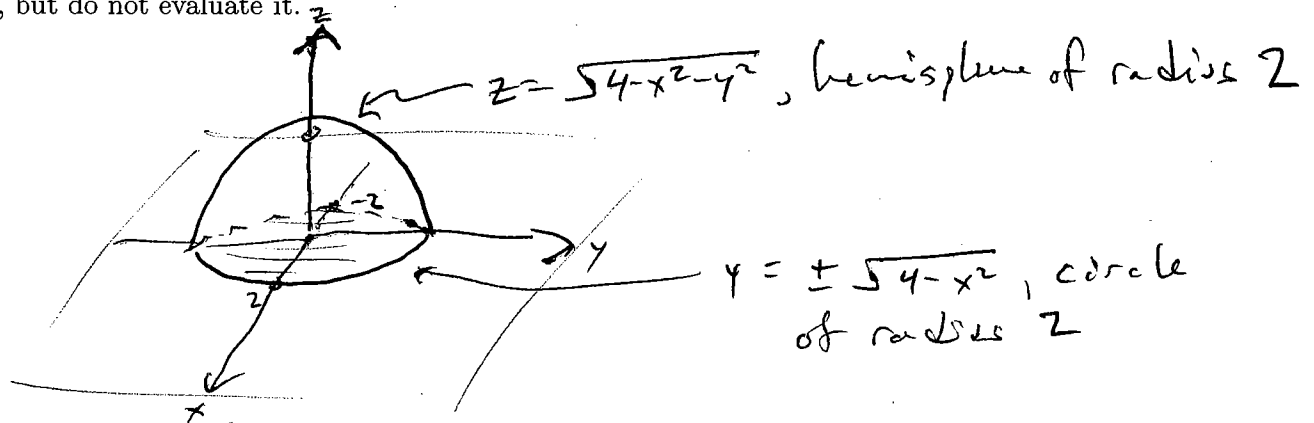 , but do not evaluate it.
z
z = √(4-x²-y²), hemisphere of radius 2
-2
y
y = ± √(4-x²), circle
of radius 2
2
x